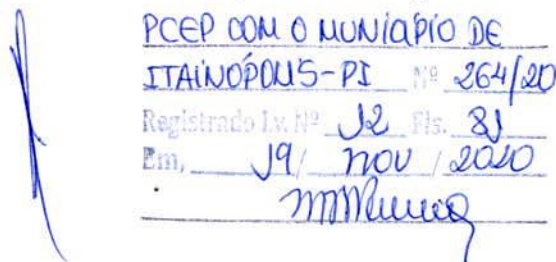 PCEP COM O MUNICÍPIO DE
ITAINÓPOLIS-PI Nº 264/20
Registrado Lv. Nº 12 Fls. 81
Em, 19 / NOV / 2020